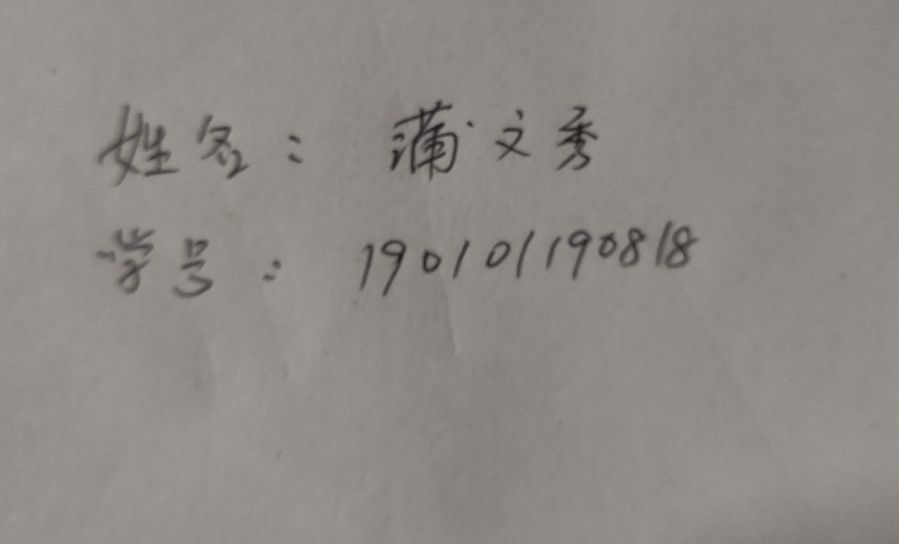 姓名：蒲文秀
学号：190101190818